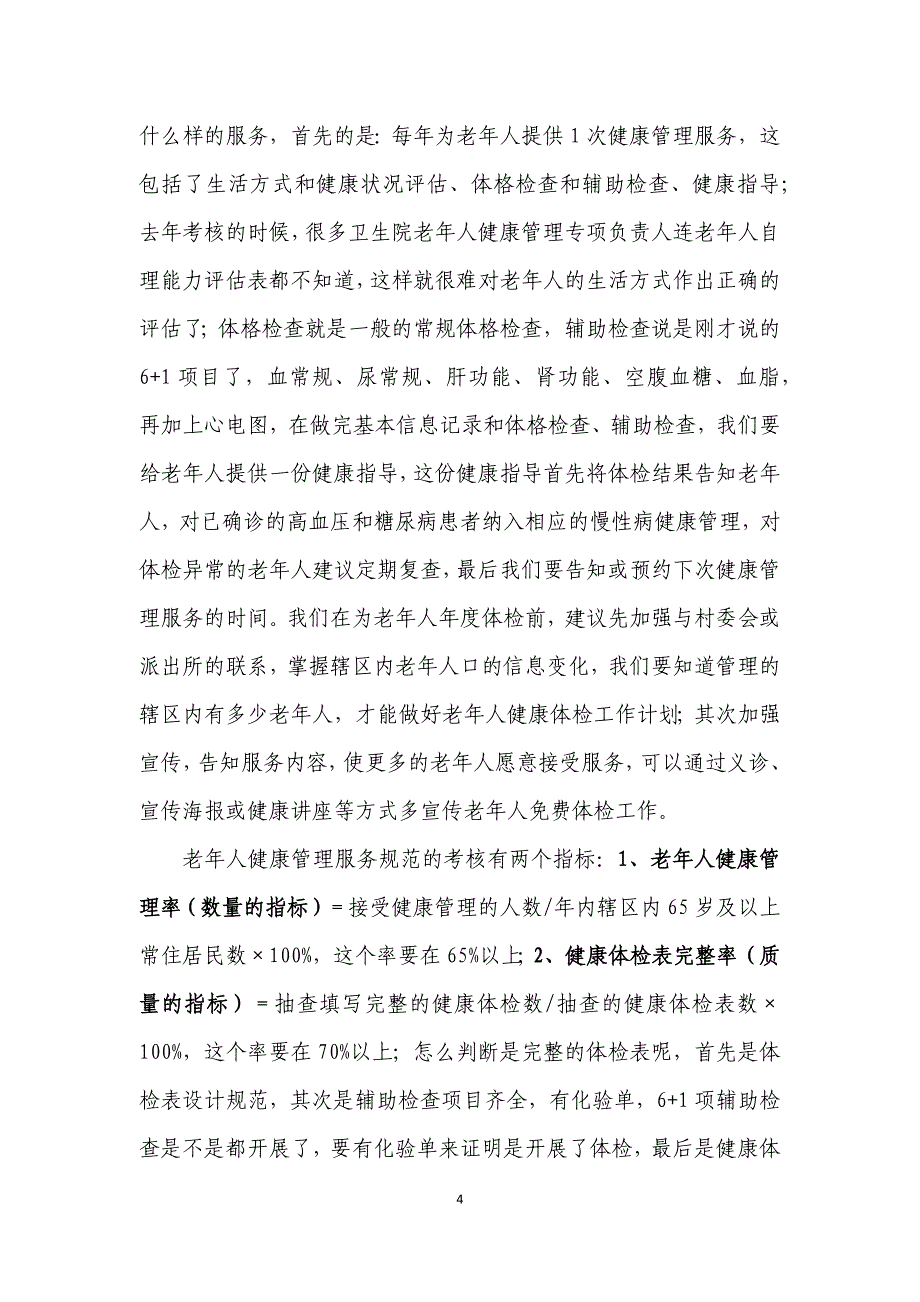 什么样的服务，首先的是：每年为老年人提供 1 次健康管理服务，这
包括了生活方式和健康状况评估、体格检查和辅助检查、健康指导；
去年考核的时候，很多卫生院老年人健康管理专项负责人连老年人自
理能力评估表都不知道，这样就很难对老年人的生活方式作出正确的
评估了；体格检查就是一般的常规体格检查，辅助检查说是刚才说的
6+1 项目了，血常规、尿常规、肝功能、肾功能、空腹血糖、血脂，
再加上心电图，在做完基本信息记录和体格检查、辅助检查，我们要
给老年人提供一份健康指导，这份健康指导首先将体检结果告知老年
人，对已确诊的高血压和糖尿病患者纳入相应的慢性病健康管理，对
体检异常的老年人建议定期复查，最后我们要告知或预约下次健康管
理服务的时间。我们在为老年人年度体检前，建议先加强与村委会或
派出所的联系，掌握辖区内老年人口的信息变化，我们要知道管理的
辖区内有多少老年人，才能做好老年人健康体检工作计划；其次加强
宣传，告知服务内容，使更多的老年人愿意接受服务，可以通过义诊、
宣传海报或健康讲座等方式多宣传老年人免费体检工作。
老年人健康管理服务规范的考核有两个指标：1、老年人健康管
理率（数量的指标）=接受健康管理的人数/年内辖区内 65 岁及以上
常住居民数×100%，这个率要在 65%以上；2、健康体检表完整率（质
量的指标）=抽查填写完整的健康体检数/抽查的健康体检表数×
100%，这个率要在 70%以上；怎么判断是完整的体检表呢，首先是体
检表设计规范，其次是辅助检查项目齐全，有化验单，6+1 项辅助检
查是不是都开展了，要有化验单来证明是开展了体检，最后是健康体
4